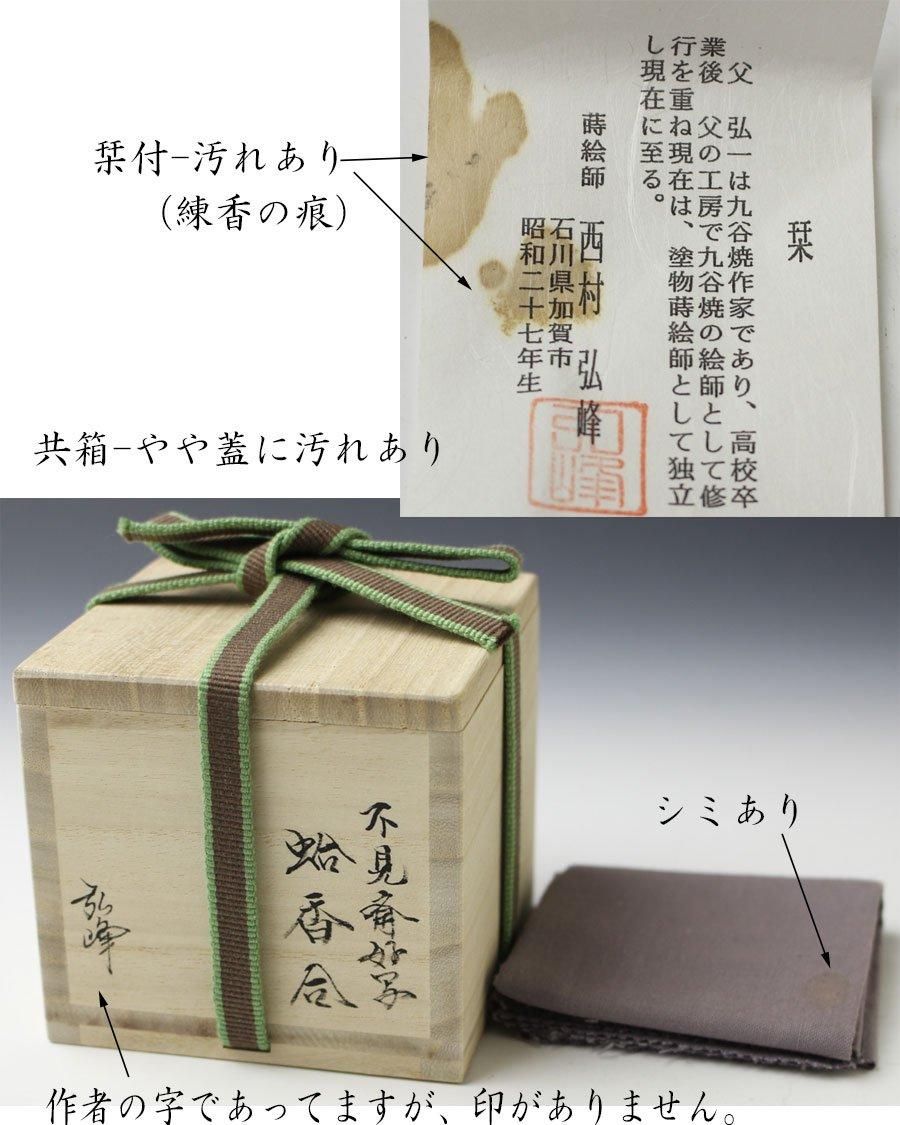 栞付-汚れあり
(練香の痕)
共箱-やや蓋に汚れあり
栞
父 弘一は九谷焼作家であり、高校卒
業後 父の工房で九谷焼の絵師として修
行を重ね現在は、塗物蒔絵師として独立
し現在に至る。
蒔絵師 西村 弘峰
石川県加賀市
昭和二十七年生
弘峰
不見斎好写
蛤香合
弘峰
シミあり
作者の字であってますが、印がありません。